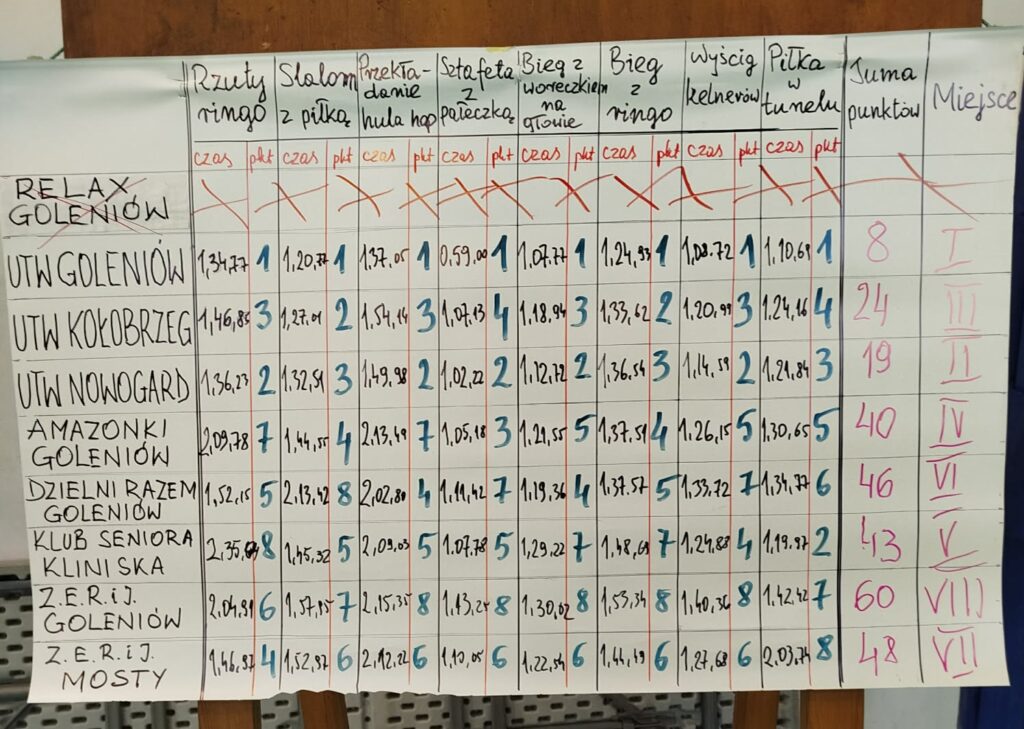 Rzuty ringo | Slalom z piłką | Przekładanie hula hop | Sztafeta z pałeczką | Bieg z woreczkiem na głowie | Bieg z ringo | Wyścig kelnerów | Piłka w tunelu | Suma punktów | Miejsce
czas pkt czas pkt czas pkt czas pkt czas pkt czas pkt czas pkt czas pkt
RELAX GOLENIÓW
UTW GOLENIÓW 1,34,77 1 1,20,77 1 1.37,05 1 0,59,00 1 1.07.77 1 1.24,93 1 1,08.72 1 1,10.69 1 8 I
UTW KOŁOBRZEG 1,46,85 3 1,27.01 2 1,54,14 3 1,07.13 4 1.18.94 3 1,33,62 2 1.20,99 3 1.24,16 4 24 III
UTW NOWOGARD 1,36,23 2 1.32,51 3 1,49,98 2 1,02,22 2 1,12,72 2 1,36,54 3 1,14.59 2 1.21,84 3 19 II
AMAZONKI GOLENIÓW 2,09,78 7 1,44,55 4 2.13,49 7 1,05,18 3 1.21,55 5 1,37,51 4 1.26,15 5 1,30,65 5 40 IV
DZIELNI RAZEM GOLENIÓW 1,52,15 5 2,13,42 8 2,02,80 4 1,11,42 7 1,19,36 4 1.37.57 5 1,33,72 7 1,34,77 6 46 VI
KLUB SENIORA KLINISKA 8 1,45,32 5 2,09,03 5 1.07.78 5 1,29,22 7 1,48,69 7 1,24,88 4 1,19,97 2 43 V
Z.E.R.iJ. GOLENIÓW 2,04,91 6 1,57,85 7 2.15,35 8 1,13,25 8 1,30,02 8 1,53,34 8 1,40,36 8 1.42,42 7 60 VIII
Z.E.R.iJ. MOSTY 1,46,97 4 1,52,97 6 2,12,22 6 1,10,05 6 1,22,54 6 1,44,49 6 1,27,68 6 2,03,74 8 48 VII